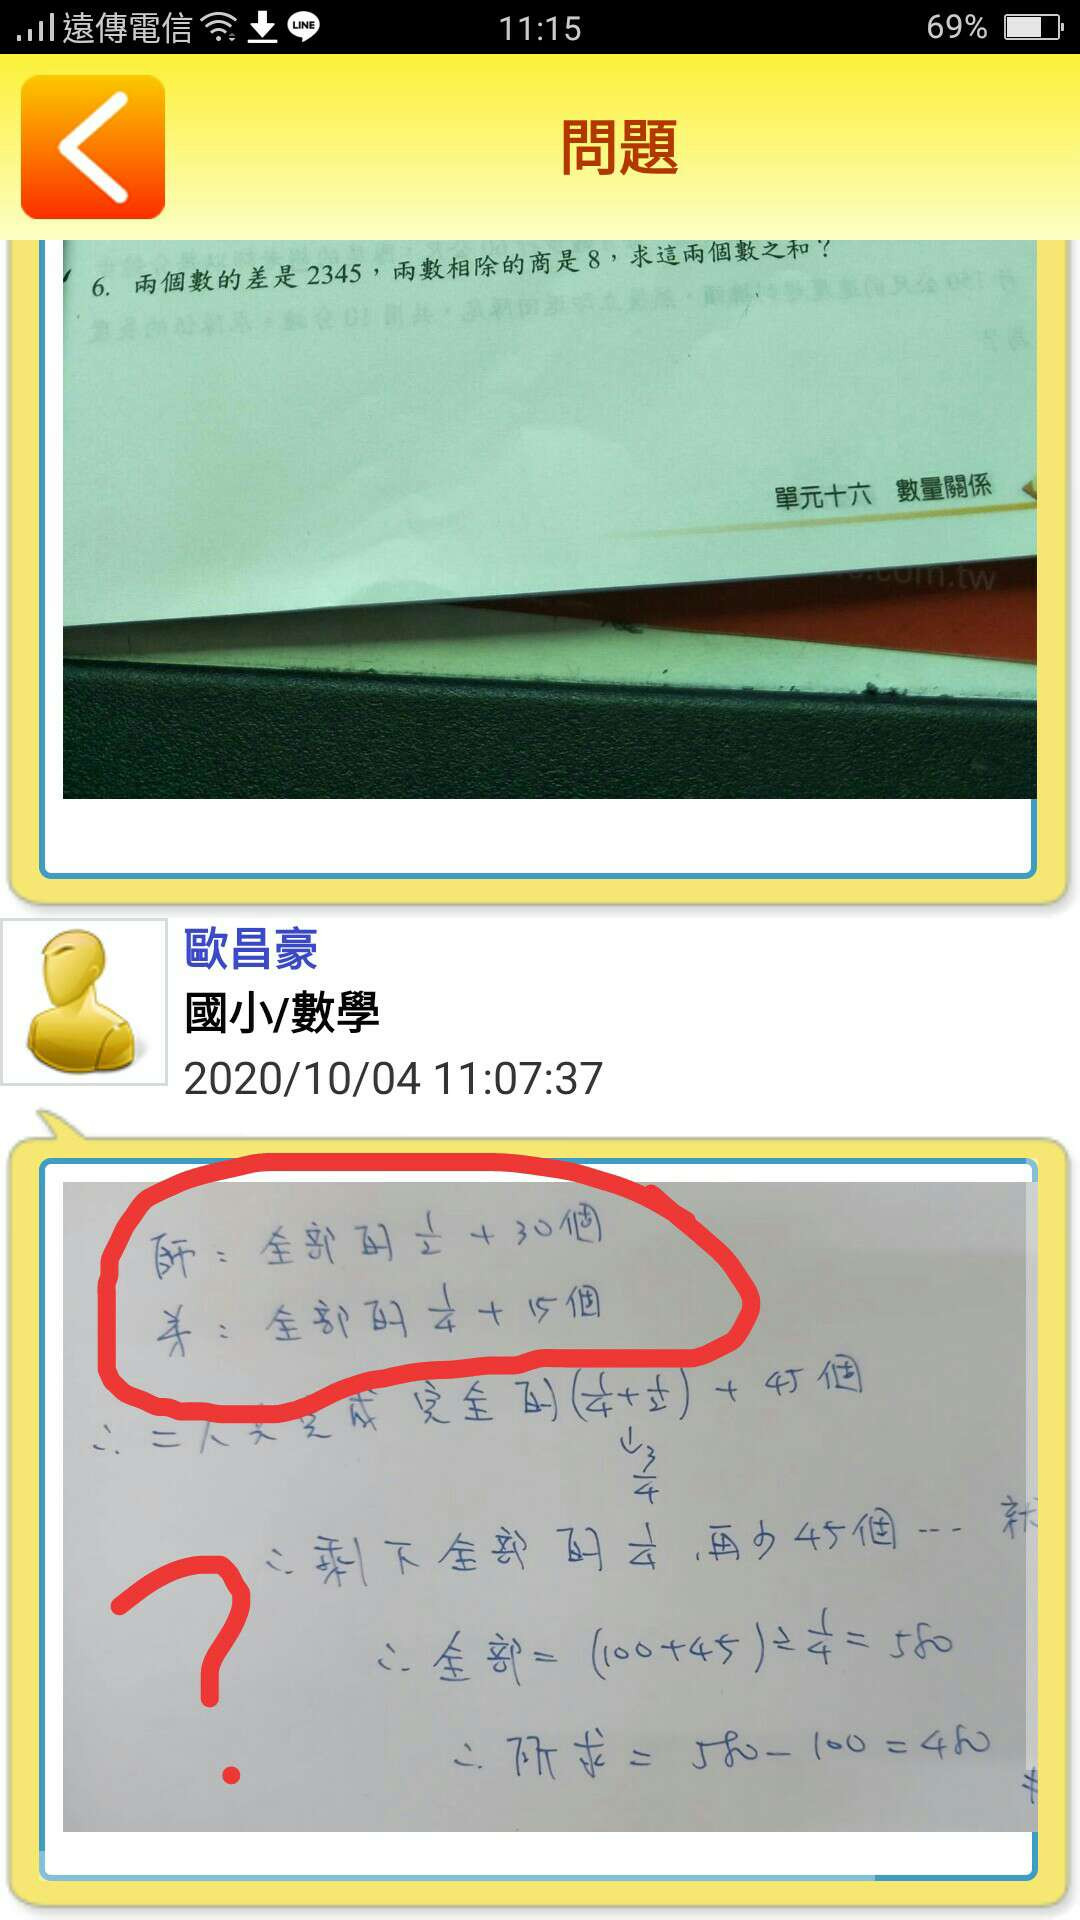 遠傳電信 LINE 11:15 69%
問題
6. 兩個數的差是 2345，兩數相除的商是 8，求這兩個數之和？
單元十六 數量關係
.com.tw
歐昌豪
國小/數學
2020/10/04 11:07:37
師：全部的 1/2 + 30個
弟：全部的 1/4 + 15個
∴ 二人共完成 完全的(1/4+1/2) + 45個
↓
3/4
∴ 剩下全部的 1/4 再少45個 ... 就
∴ 全部 = (100+45) ÷ 1/4 = 580
? ∴ 所求 = 580 - 100 = 480
#